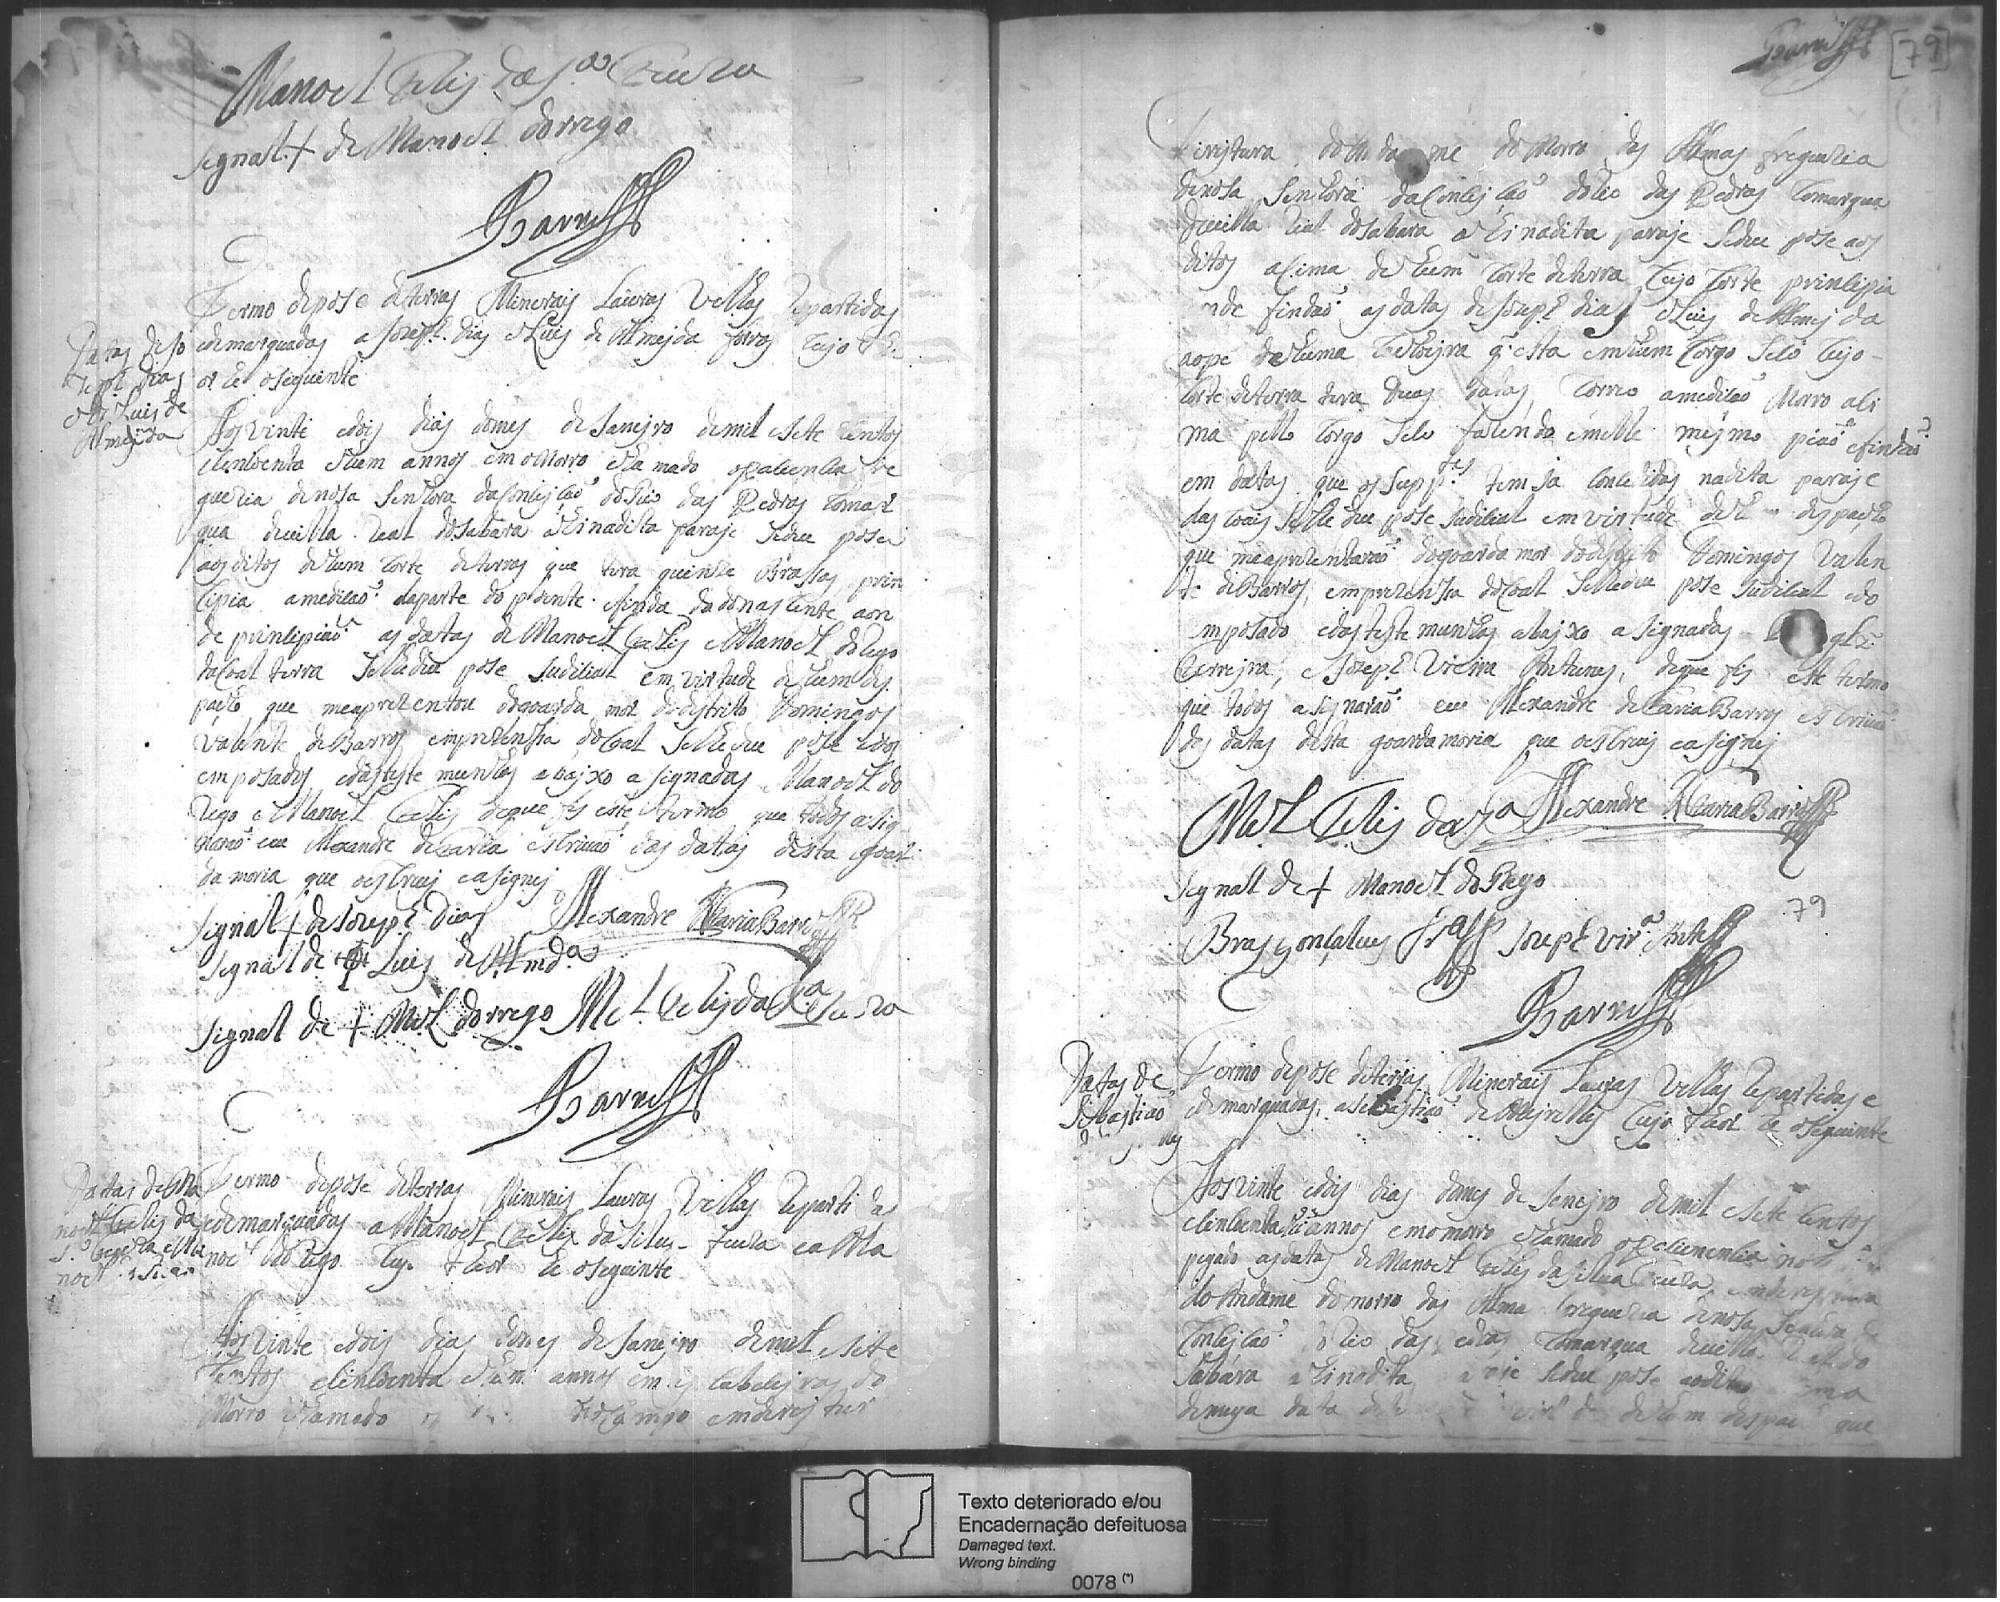 Manoel Felis da S.ª Ceuza
signal + de Manoel dorrego
Barros
Termo depose deterras Minerais Lauras Velhas Repartidas
edemarquadas a Joseph dias eLuis de Almejda forros Cujo
or he oseguinte
Datas de Jo
seph dias
e Luis de
Almejda
Aos vinte edois dias domes de Janejro demil esete centos
eCinCoenta ehum annos emoMorro chamado opaciencia fre
guezia denosa Senhora daConseiçaõ doRio das Pedras Comar
qua deuilla Real doSabara ehinadita paraje sedeu pose
aos ditos dehum Corte deterras que tera quinze Brasas prin
Cipia amedicaõ daparte do poente efinda dadonascente aon
de prinCipiaõ as datas de Manoel Felis eManoel doRego
daCoal terra selhedeu pose Judicial em virtude dehum des
pacho que meaprezentou doguarda mor dodistrito Domingos
Valente deBarros emprezensa doCoal selhedeu pose edos
emposados edastestemunhas abajxo asignadas Manoel do
Rego eManoel Felis deque fis este termo que todos asig
naraõ eu Alexandre deFaria escriuaõ das datas desta goar
da moria que oescreuj easignej
signal + deJoseph Dias Alexandre deFariaBarros
signal de + Luis de Almd.ª
signal de + M.el dorrego M.el Felis da S.ª Ceuza
Barros
Datas de Ma
noel Felis da
S.ª Ceuza eMa
noel
Termo depose deterras Minerais Lauras Velhas Reparti das
edemarquadas aManoel Felix da Silua Ceuza eaMa
noel doRego Cujo theor he oseguinte
Aos vinte edois dias domes deJanejro demil esete
Centos eCinCoenta ehum annos em as Cabesejras do
Morro chamado doCampo emderejtur
Barros [79]
derejtura doAndame doMorro das Almas freguezia
denosa Senhora daConseiçaõ doRio das Pedras Comarqua
deuilla Real doSabara ahinadita paraje sedeu pose aos
ditos aCima dehum Corte deterra Cujo Corte prinCipia
onde findaõ as datas deJoseph dias eLuis deAlmejda
aope dehuma q. esta emhum Corgo seCo Cujo
Corte deterra tera duas datas Corre amedicaõ Morro aCi
ma pello Corgo seCo fazendo emelle mesmo piaõ efindaõ
em datas que os Supp.tes tem Ja ConCedidas nadita paraje
das Coais selhe deu pose Judicial em virtude dehum despacho
que meaprezentaraõ doguarda mor dodistrito Domingos Valen
te deBarros, emprezensa doCoal selhedeu pose Judicial edo
emposado edastestemunhas abajxo asignadas
Ferrejra, eJoseph Vieira Antunes, deque fis este termo
que todos asignaraõ eu Alexandre deFariaBarros escriuaõ
das datas desta goardamoria que oescreuj easignej
M.el Felis da S.ª Alexandre deFariaBarros
signal de + Manoel doRego
79
Bras gonçalues Joseph Vir.ª
Barros
Datas de
Sebastiaõ
Termo depose deterras Minerais Lauras Velhas Repartidas e
edemarquadas, aSebastiaõ deMejrelles Cujo theor he oseguinte
Aos vinte edois dias domes de Janejro demil esete Centos
eCinCoenta ehum annos emomorro chamado
pegado asdatas deManoel Felis daSilua Ceuza
doAndame domorro das Almas freguezia denosa Senhora da
Conseiçaõ doRio das Pedras Comarqua deuilla Real do
Sabara ahinadita paraje sedeu pose aodito
demeya data dehum despacho que
Texto deteriorado e/ou
Encadernação defeituosa
Damaged text.
Wrong binding
0078 (*)